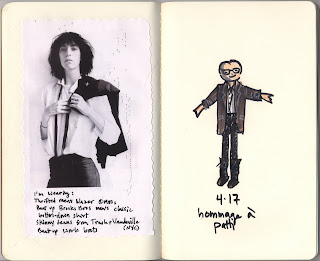 I'm wearing:
Thrifted mens blazer
Beat up Brooks Bros men's classic
button-down shirt
Skinny jeans from Trash & Vaudeville
(NYC)
Beat up work boots
4.17
hommage à
patti